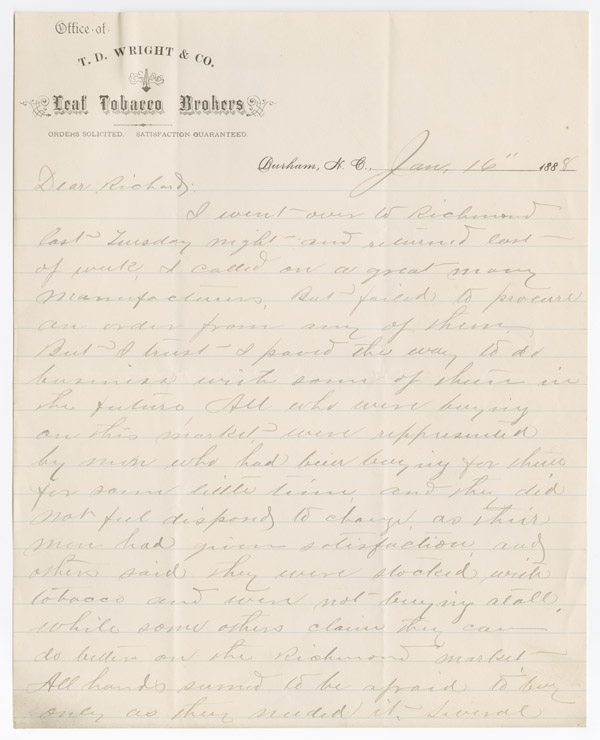 Office of
T. D. WRIGHT & CO.
Leaf Tobacco Brokers
ORDERS SOLICITED. SATISFACTION GUARANTEED.
Durham, N. C., Jan, 16" 1888
Dear Richard;
I went over to Richmond
last Tuesday night and returned last
of week, I called on a great many
manufacturers, But failed to procure
an order from any of them.
But I trust I paved the way to do
business with some of them in
the future All who were buying
on this market were reppresented
by men who had been buying for them
for some little time, and they did
not feel disposed to change, as their
men had given satisfaction, and
others said they were stocked with
tobacco and were not buying at all,
while some others claim they can
do better on the Richmond market.
All hands seemed to be afraid to buy
only as they needed it. Several